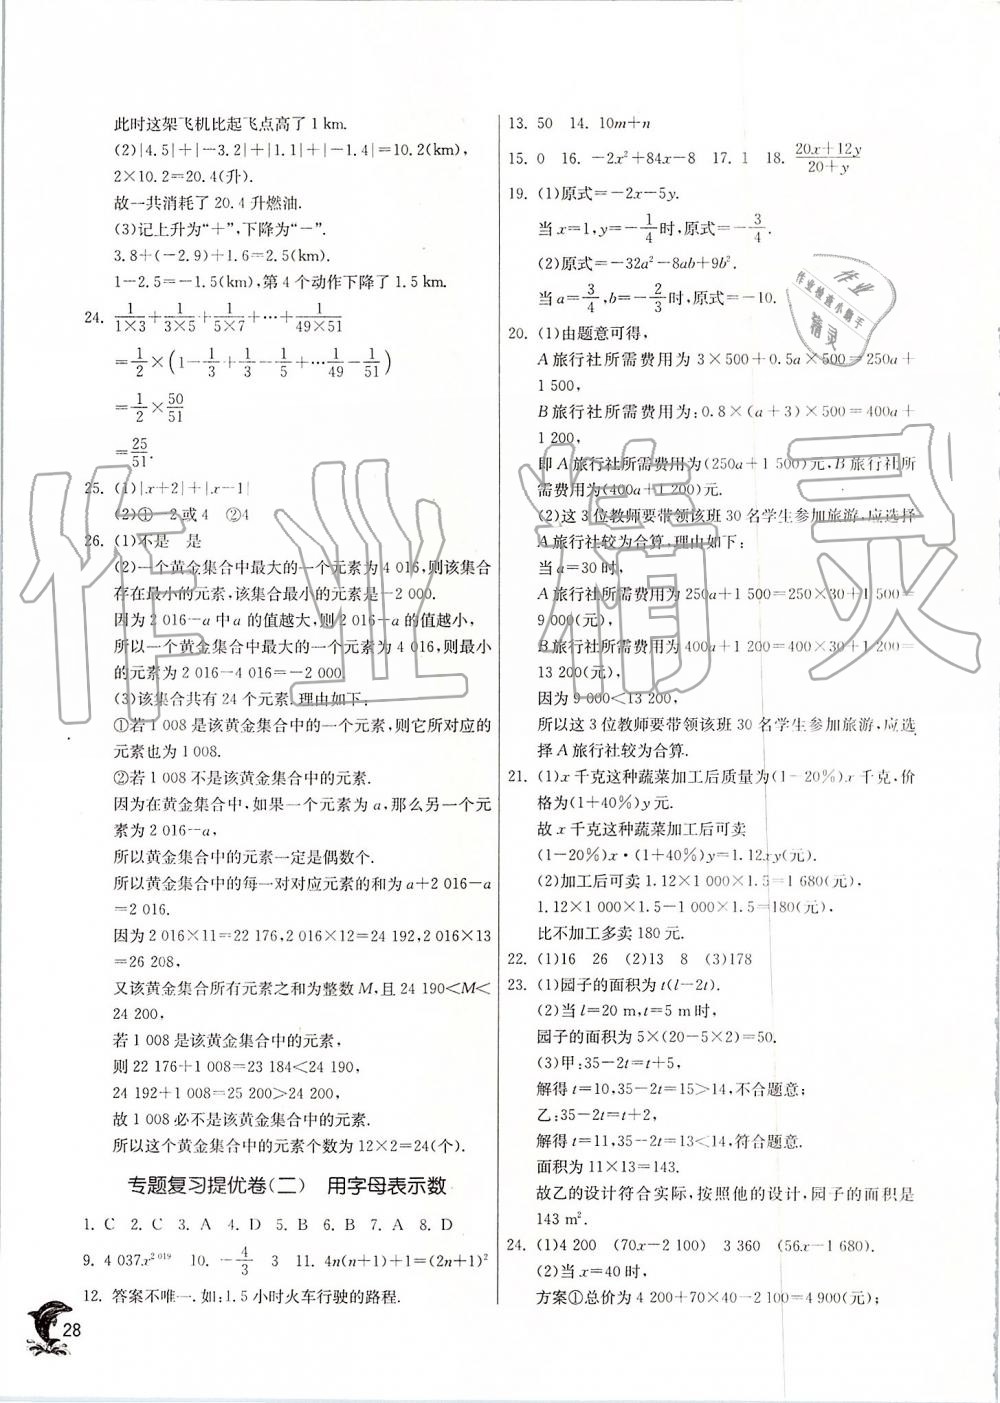 此时这架飞机比起飞点高了 1 km.
(2)|4.5|+|-3.2|+|1.1|+|-1.4|=10.2(km),
2×10.2=20.4(升).
故一共消耗了 20.4 升燃油.
(3)记上升为“+”,下降为“-”.
3.8+(-2.9)+1.6=2.5(km).
1-2.5=-1.5(km),第 4 个动作下降了 1.5 km.
24. 1/(1×3)+1/(3×5)+1/(5×7)+…+1/(49×51)
=1/2×(1-1/3+1/3-1/5+…1/49-1/51)
=1/2×50/51
=25/51.
25. (1)|x+2|+|x-1|
(2)①-2 或 4 ②4
26. (1)不是 是
(2)一个黄金集合中最大的一个元素为 4 016,则该集合
存在最小的元素,该集合最小的元素为-2 000.
因为 2 016-a 中 a 的值越大,则 2 016-a 的值越小,
所以一个黄金集合中最大的一个元素为 4 016,则最小
的元素为 2 016-4 016=-2 000.
(3)该集合共有 24 个元素.理由如下:
①若 1 008 是该黄金集合中的一个元素,则它所对应的
元素也为 1 008.
②若 1 008 不是该黄金集合中的元素.
因为在黄金集合中,如果一个元素为 a,那么另一个元
素为 2 016-a,
所以黄金集合中的元素一定是偶数个.
所以黄金集合中的每一对对应元素的和为 a+2 016-a
=2 016.
因为 2 016×11=22 176,2 016×12=24 192,2 016×13
=26 208,
又该黄金集合所有元素之和为整数 M,且 24 190<M<
24 200,
若 1 008 是该黄金集合中的元素,
则 22 176+1 008=23 184<24 190,
24 192+1 008=25 200>24 200,
故 1 008 必不是该黄金集合中的元素.
所以这个黄金集合中的元素个数为 12×2=24(个).
专题复习提优卷(二) 用字母表示数
1. C 2. C 3. A 4. D 5. B 6. B 7. A 8. D
9. 4 037x^2 019 10. -4/3 3 11. 4n(n+1)+1=(2n+1)²
12. 答案不唯一.如:1.5 小时火车行驶的路程.
28
13. 50 14. 10m+n
15. 0 16. -2x²+84x-8 17. 1 18. (20x+12y)/(20+y)
19. (1)原式=-2x-5y.
当 x=1,y=-1/4时,原式=-3/4.
(2)原式=-32a²-8ab+9b².
当 a=3/4,b=-2/3时,原式=-10.
20. (1)由题意可得,
A 旅行社所需费用为 3×500+0.5a×500=250a+
1 500,
B 旅行社所需费用为:0.8×(a+3)×500=400a+
1 200,
即 A 旅行社所需费用为(250a+1 500)元,B 旅行社所
需费用为(400a+1 200)元.
(2)这 3 位教师要带领该班 30 名学生参加旅游,应选择
A 旅行社较为合算.理由如下:
当 a=30 时,
A 旅行社所需费用为 250a+1 500=250×30+1 500=
9 000(元),
B 旅行社所需费用为 400a+1 200=400×30+1 200=
13 200(元),
因为 9 000<13 200,
所以这 3 位教师要带领该班 30 名学生参加旅游,应选
择 A 旅行社较为合算.
21. (1)x 千克这种蔬菜加工后质量为(1-20%)x 千克,价
格为(1+40%)y 元.
故 x 千克这种蔬菜加工后可卖
(1-20%)x·(1+40%)y=1.12xy(元).
(2)加工后可卖 1.12×1 000×1.5=1 680(元),
1.12×1 000×1.5-1 000×1.5=180(元),
比不加工多卖 180 元.
22. (1)16 26 (2)13 8 (3)178
23. (1)园子的面积为 t(l-2t).
(2)当 l=20 m,t=5 m 时,
园子的面积为 5×(20-5×2)=50.
(3)甲:35-2t=t+5,
解得 t=10,35-2t=15>14,不合题意;
乙:35-2t=t+2,
解得 t=11,35-2t=13<14,符合题意.
面积为 11×13=143.
故乙的设计符合实际,按照他的设计,园子的面积是
143 m².
24. (1)4 200 (70x-2 100) 3 360 (56x-1 680).
(2)当 x=40 时,
方案①总价为 4 200+70×40-2 100=4 900(元);
作业精灵
作业
作业检查小助手
精灵